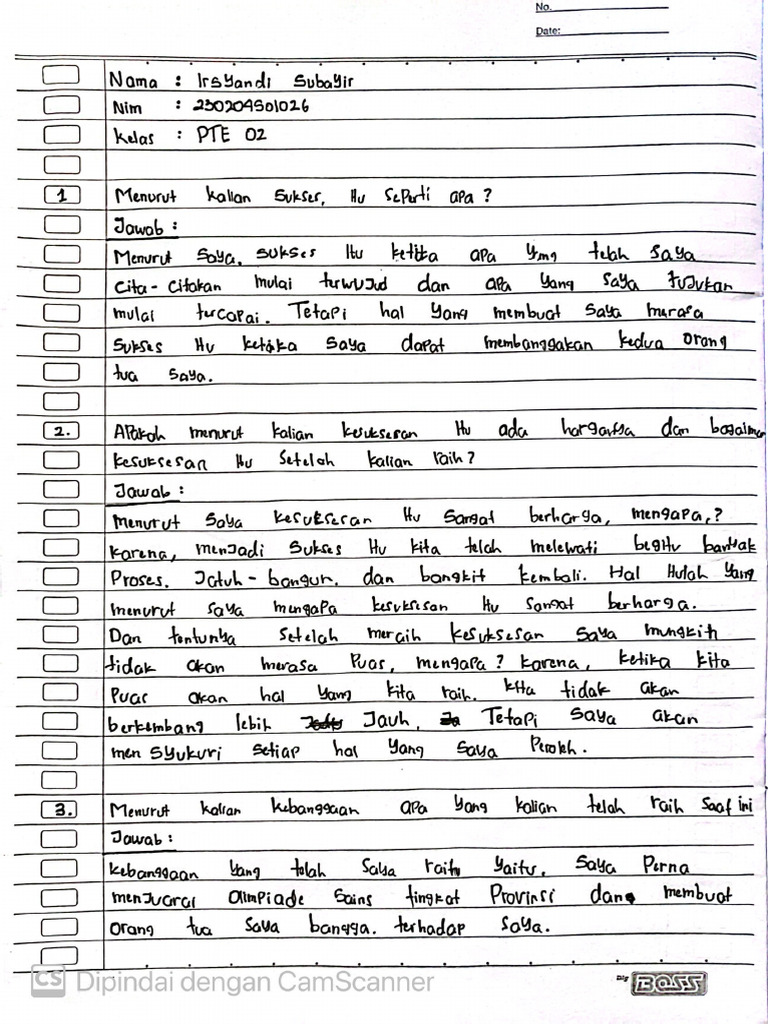 No.
Date:
Nama : Irsyandi Subayir
Nim : 230204501026
Kelas : PTE 02
1 Menurut kalian sukses, itu seperti apa ?
Jawab :
Menurut saya, sukses itu ketika apa yang telah saya
Cita - Citakan mulai terwujud dan apa yang saya tujukan
mulai tercapai. Tetapi hal yang membuat saya merasa
sukses itu ketika saya dapat membanggakan kedua orang
tua saya.
2. Apakah menurut kalian kesuksesan itu ada harganya dan bagaimana
kesuksesan itu setelah kalian raih ?
Jawab :
Menurut saya kesuksesan itu sangat berharga, mengapa, ?
karena, menjadi sukses itu kita telah melewati begitu banyak
Proses. Jatuh - bangun. dan bangkit kembali. Hal itulah yang
menurut saya mengapa kesuksesan itu sangat berharga.
Dan tentunya setelah meraih kesuksesan saya mungkin
tidak akan merasa puas, mengapa ? karena, ketika kita
Puas akan hal yang kita raih. kita tidak akan
berkembang lebih Jauh, Tetapi saya akan
men syukuri setiap hal yang saya Peroleh.
3. Menurut kalian kebanggaan apa yang kalian telah raih saat ini
Jawab :
kebanggaan yang telah saya raih yaitu, saya Perna
menjuarai Olimpiade Sains tingkat Provinsi dan membuat
orang tua saya bangga. terhadap saya.
BOSS
CS Dipindai dengan CamScanner